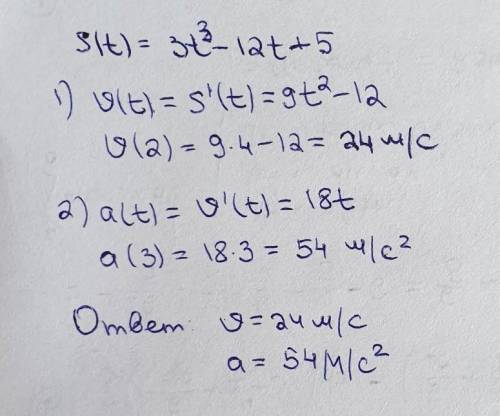 S(t) = 3t³ - 12t + 5
1) υ(t) = S'(t) = 9t² - 12
υ(2) = 9·4 - 12 = 24 м/с
2) a(t) = υ'(t) = 18t
a(3) = 18·3 = 54 м/с²
Ответ: υ = 24 м/с
a = 54 м/с²